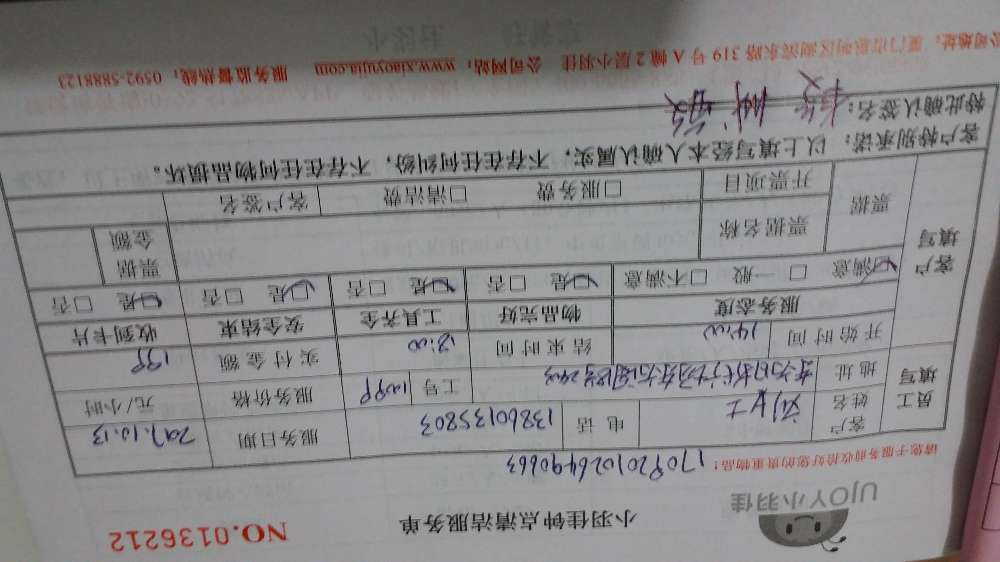 UJOY小羽佳
小羽佳钟点清洁服务单
NO.0136212
请您于服务前收拾好您的贵重物品!
1709201026490663
员工填写
客户姓名
女士
电话
13860135803
服务日期
2017.10.13
地址
工号
服务价格
元/小时
开始时间
14:00
结束时间
18:00
实付金额
199
客户填写
服务态度
物品完好
工具齐全
安全结束
收到卡片
☑满意 □一般 □不满意
☑是 □否
☑是 □否
☑是 □否
☑是 □否
票据
票据名称
票据金额
开票项目
□服务费 □清洁费
客户签名
客户特别承诺:以上填写经本人确认属实,不存在任何纠纷,不存在任何物品损坏。
特此确认签名:
公司地址:厦门市思明区湖滨东路 319 号 A 幢 2 层小羽佳 公司网站:www.xiaoyujia.com 服务监督热线:0592-5888123